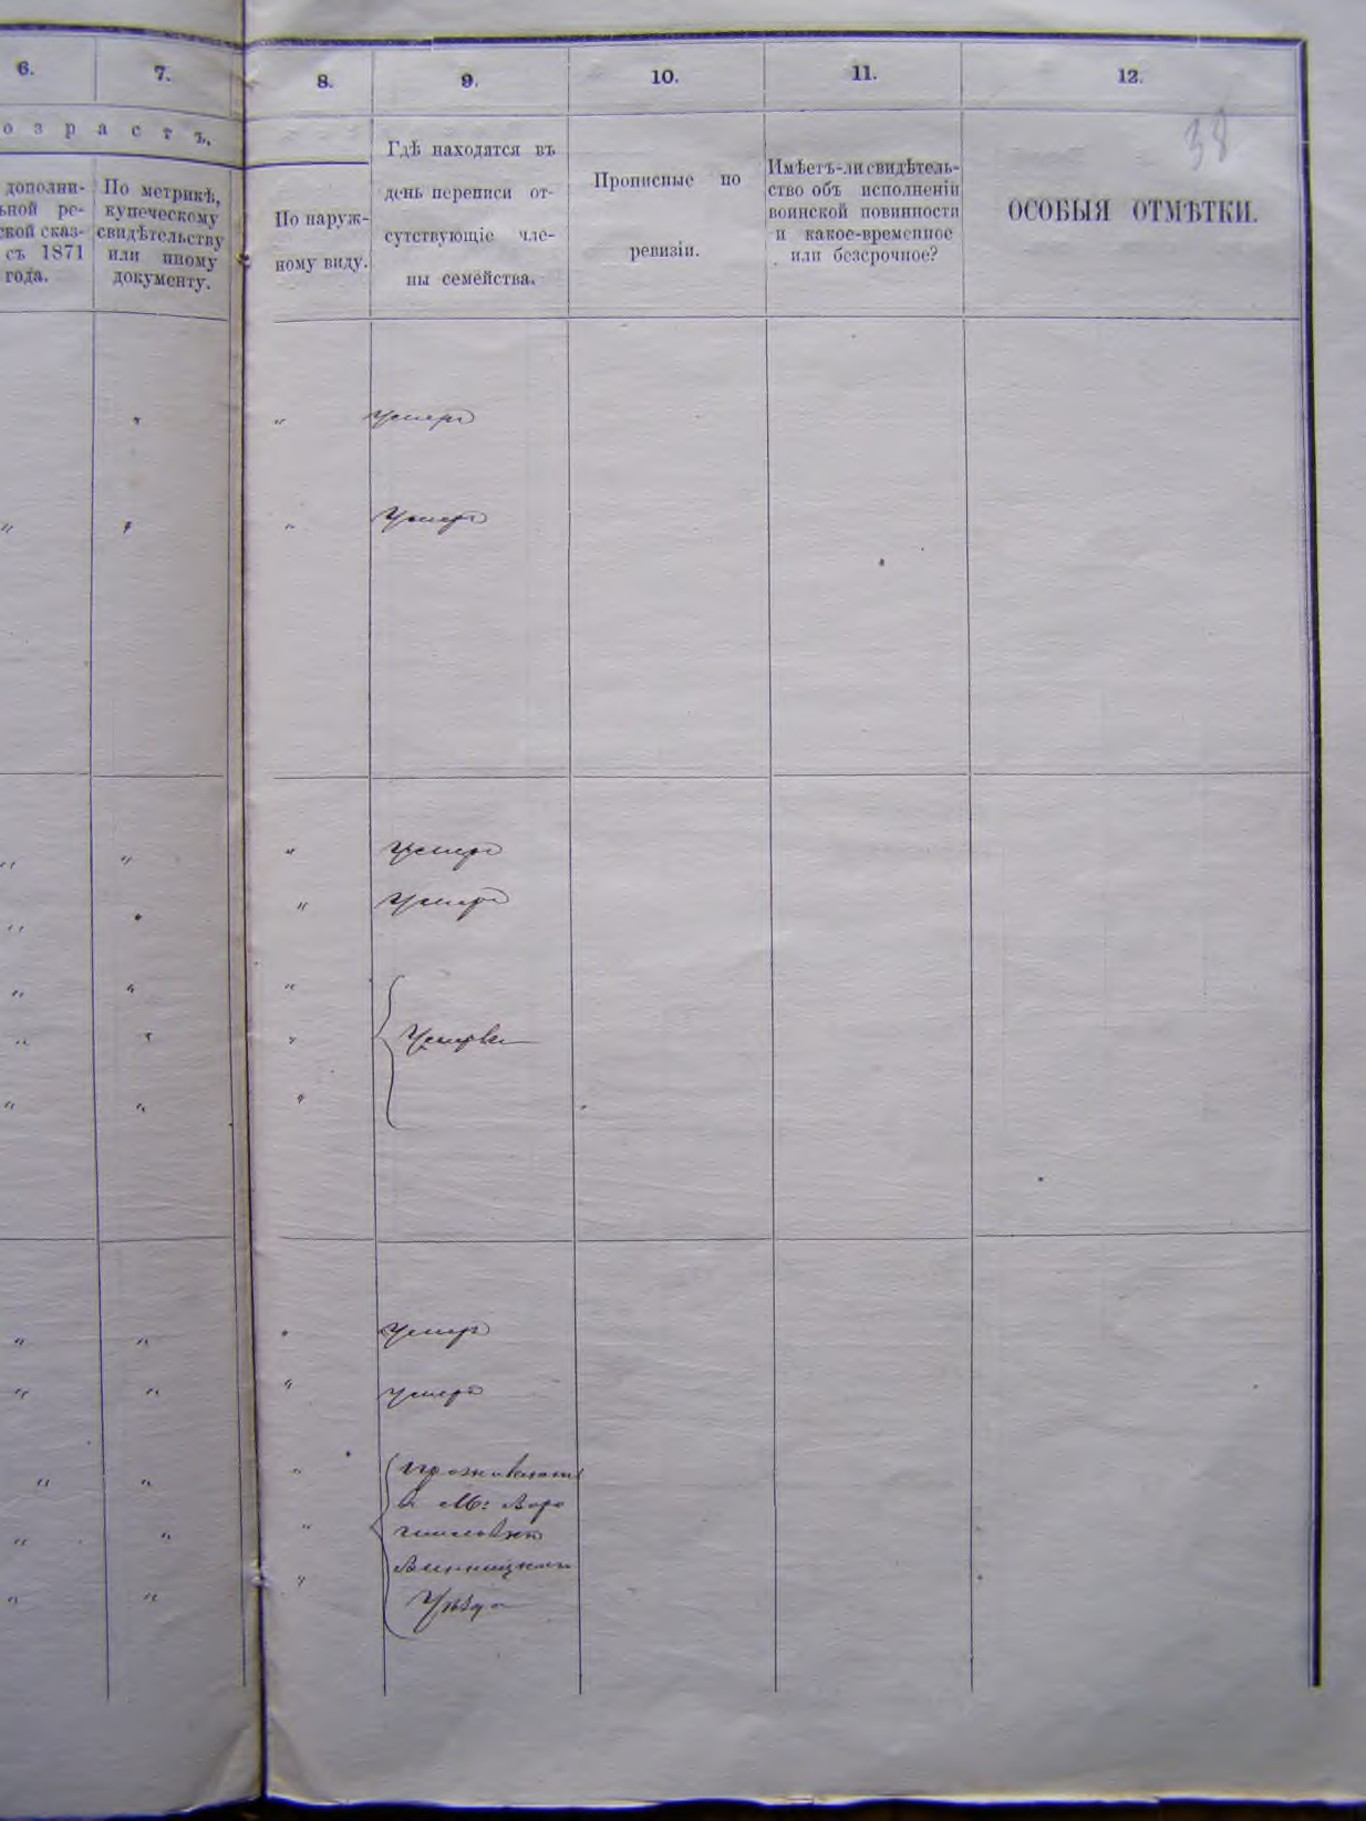 6. 7. 8. 9. 10. 11. 12.
38
о з р а с т ъ.
дополни-
ьной ре-
ской сказ-
съ 1871
года.
По метрикѣ,
купеческому
свидѣтельству
или иному
документу.
По наруж-
ному виду.
Гдѣ находятся въ
день переписи от-
сутствующіе чле-
ны семейства.
Прописные по
ревизіи.
Имѣетъ-ли свидѣтель-
ство объ исполненіи
воинской повинности
и какое-временное
или безсрочное?
ОСОБЫЯ ОТМѢТКИ.
" " умеръ
" " " Умеръ
" " " Умеръ
" " " Умеръ
" " "
" " " Умерли
" " "
" " " Умеръ
" " " умеръ
" " " проживаютъ
в М: Воро
" " " Винницкаго
" " " Уѣзда